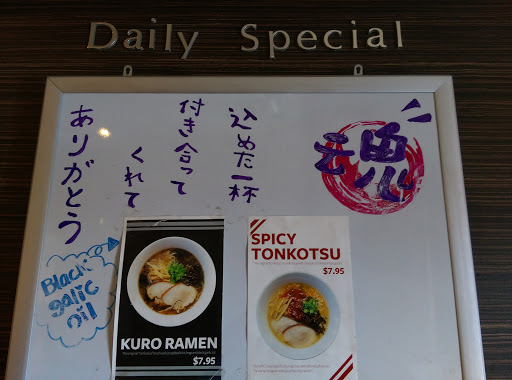 Daily Special
魂
込めた一杯
付き合って
くれて
ありがとう
Black
galic
oil
KURO RAMEN
$7.95
SPICY
TONKOTSU
$7.95